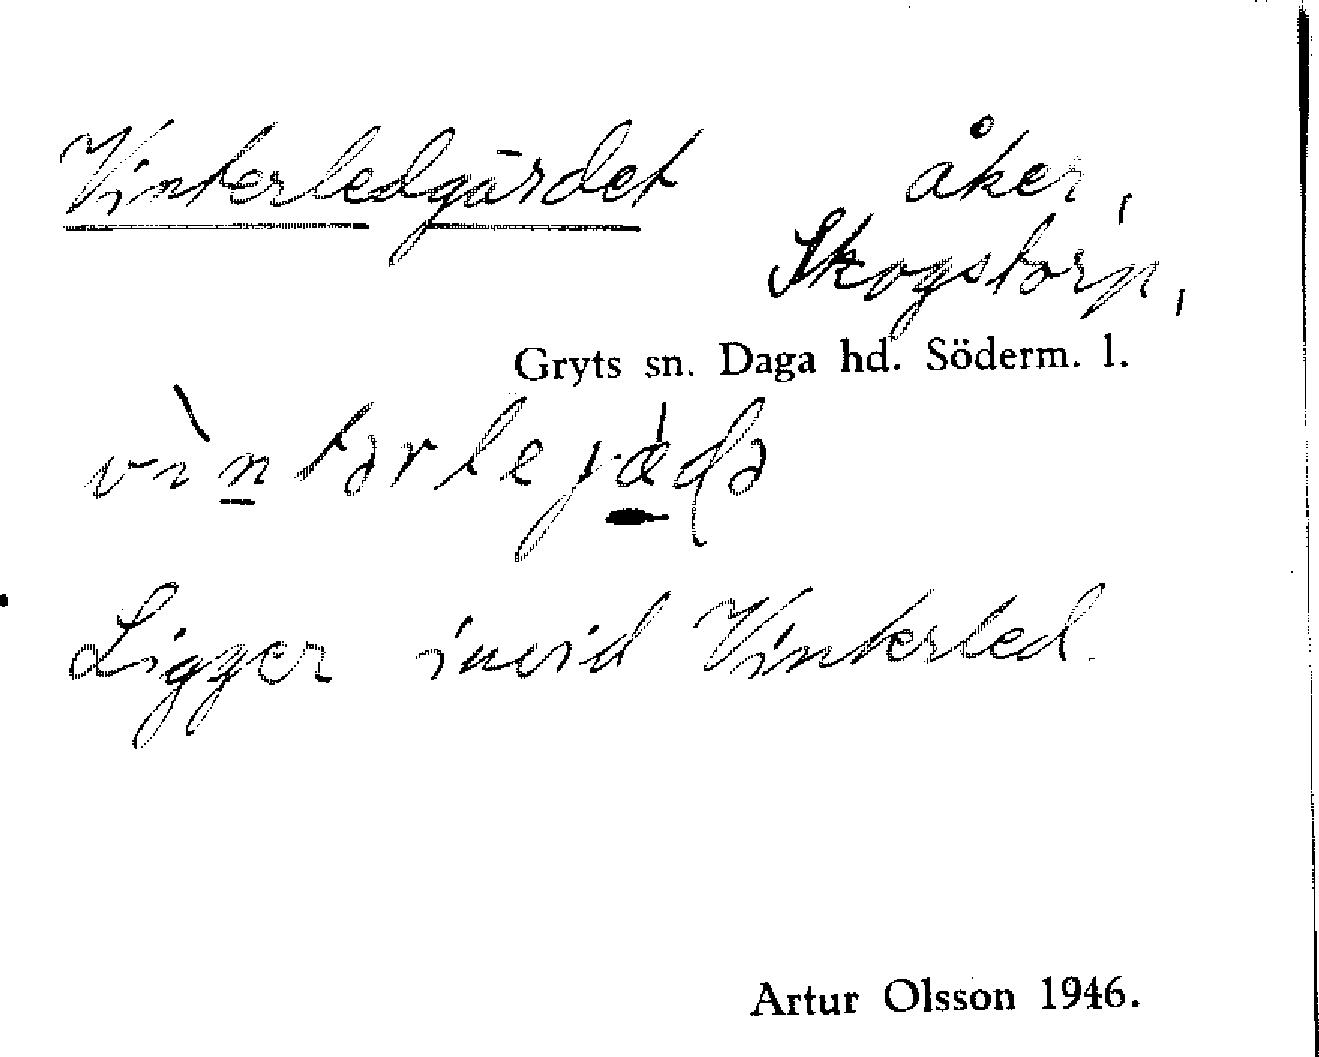 Vinterledgärdet åker,
Skogstorp,
Gryts sn. Daga hd. Söderm. l.
vìntərlejæ̀ɖə
Ligger invid Vinterled.
Artur Olsson 1946.